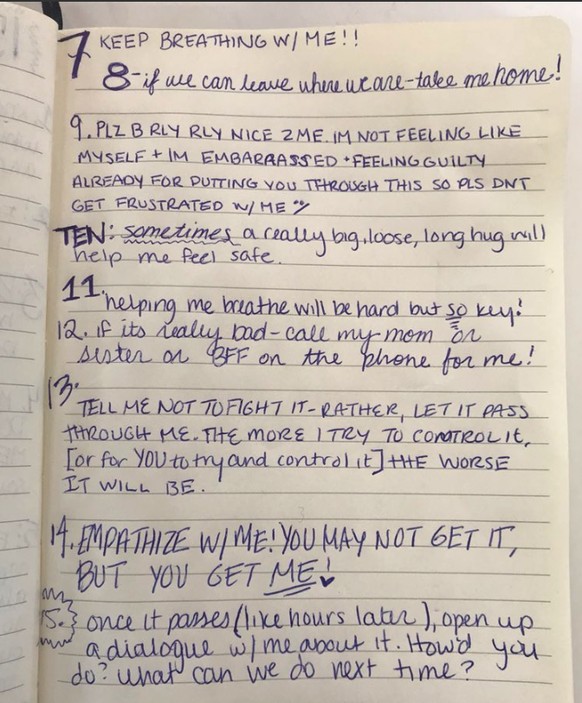 7 KEEP BREATHING W/ ME!!
8-if we can leave where we are-take me home!
9. PLZ B RLY RLY NICE 2 ME. IM NOT FEELING LIKE
MYSELF + IM EMBARRASSED + FEELING GUILTY
ALREADY FOR PUTTING YOU THROUGH THIS SO PLS DNT
GET FRUSTRATED W/ ME
TEN: sometimes a really big, loose, long hug will
help me feel safe.
11. helping me breathe will be hard but so key!
12. if its really bad-call my mom or
sister or BFF on the phone for me!
13. TELL ME NOT TO FIGHT IT-RATHER, LET IT PASS
THROUGH ME. THE MORE I TRY TO CONTROL IT,
[or for YOU to try and control it] THE WORSE
IT WILL BE.
14. EMPATHIZE W/ ME! YOU MAY NOT GET IT,
BUT YOU GET ME!
15. once it passes (like hours later), open up
a dialogue w/ me about it. How'd you
do? what can we do next time?